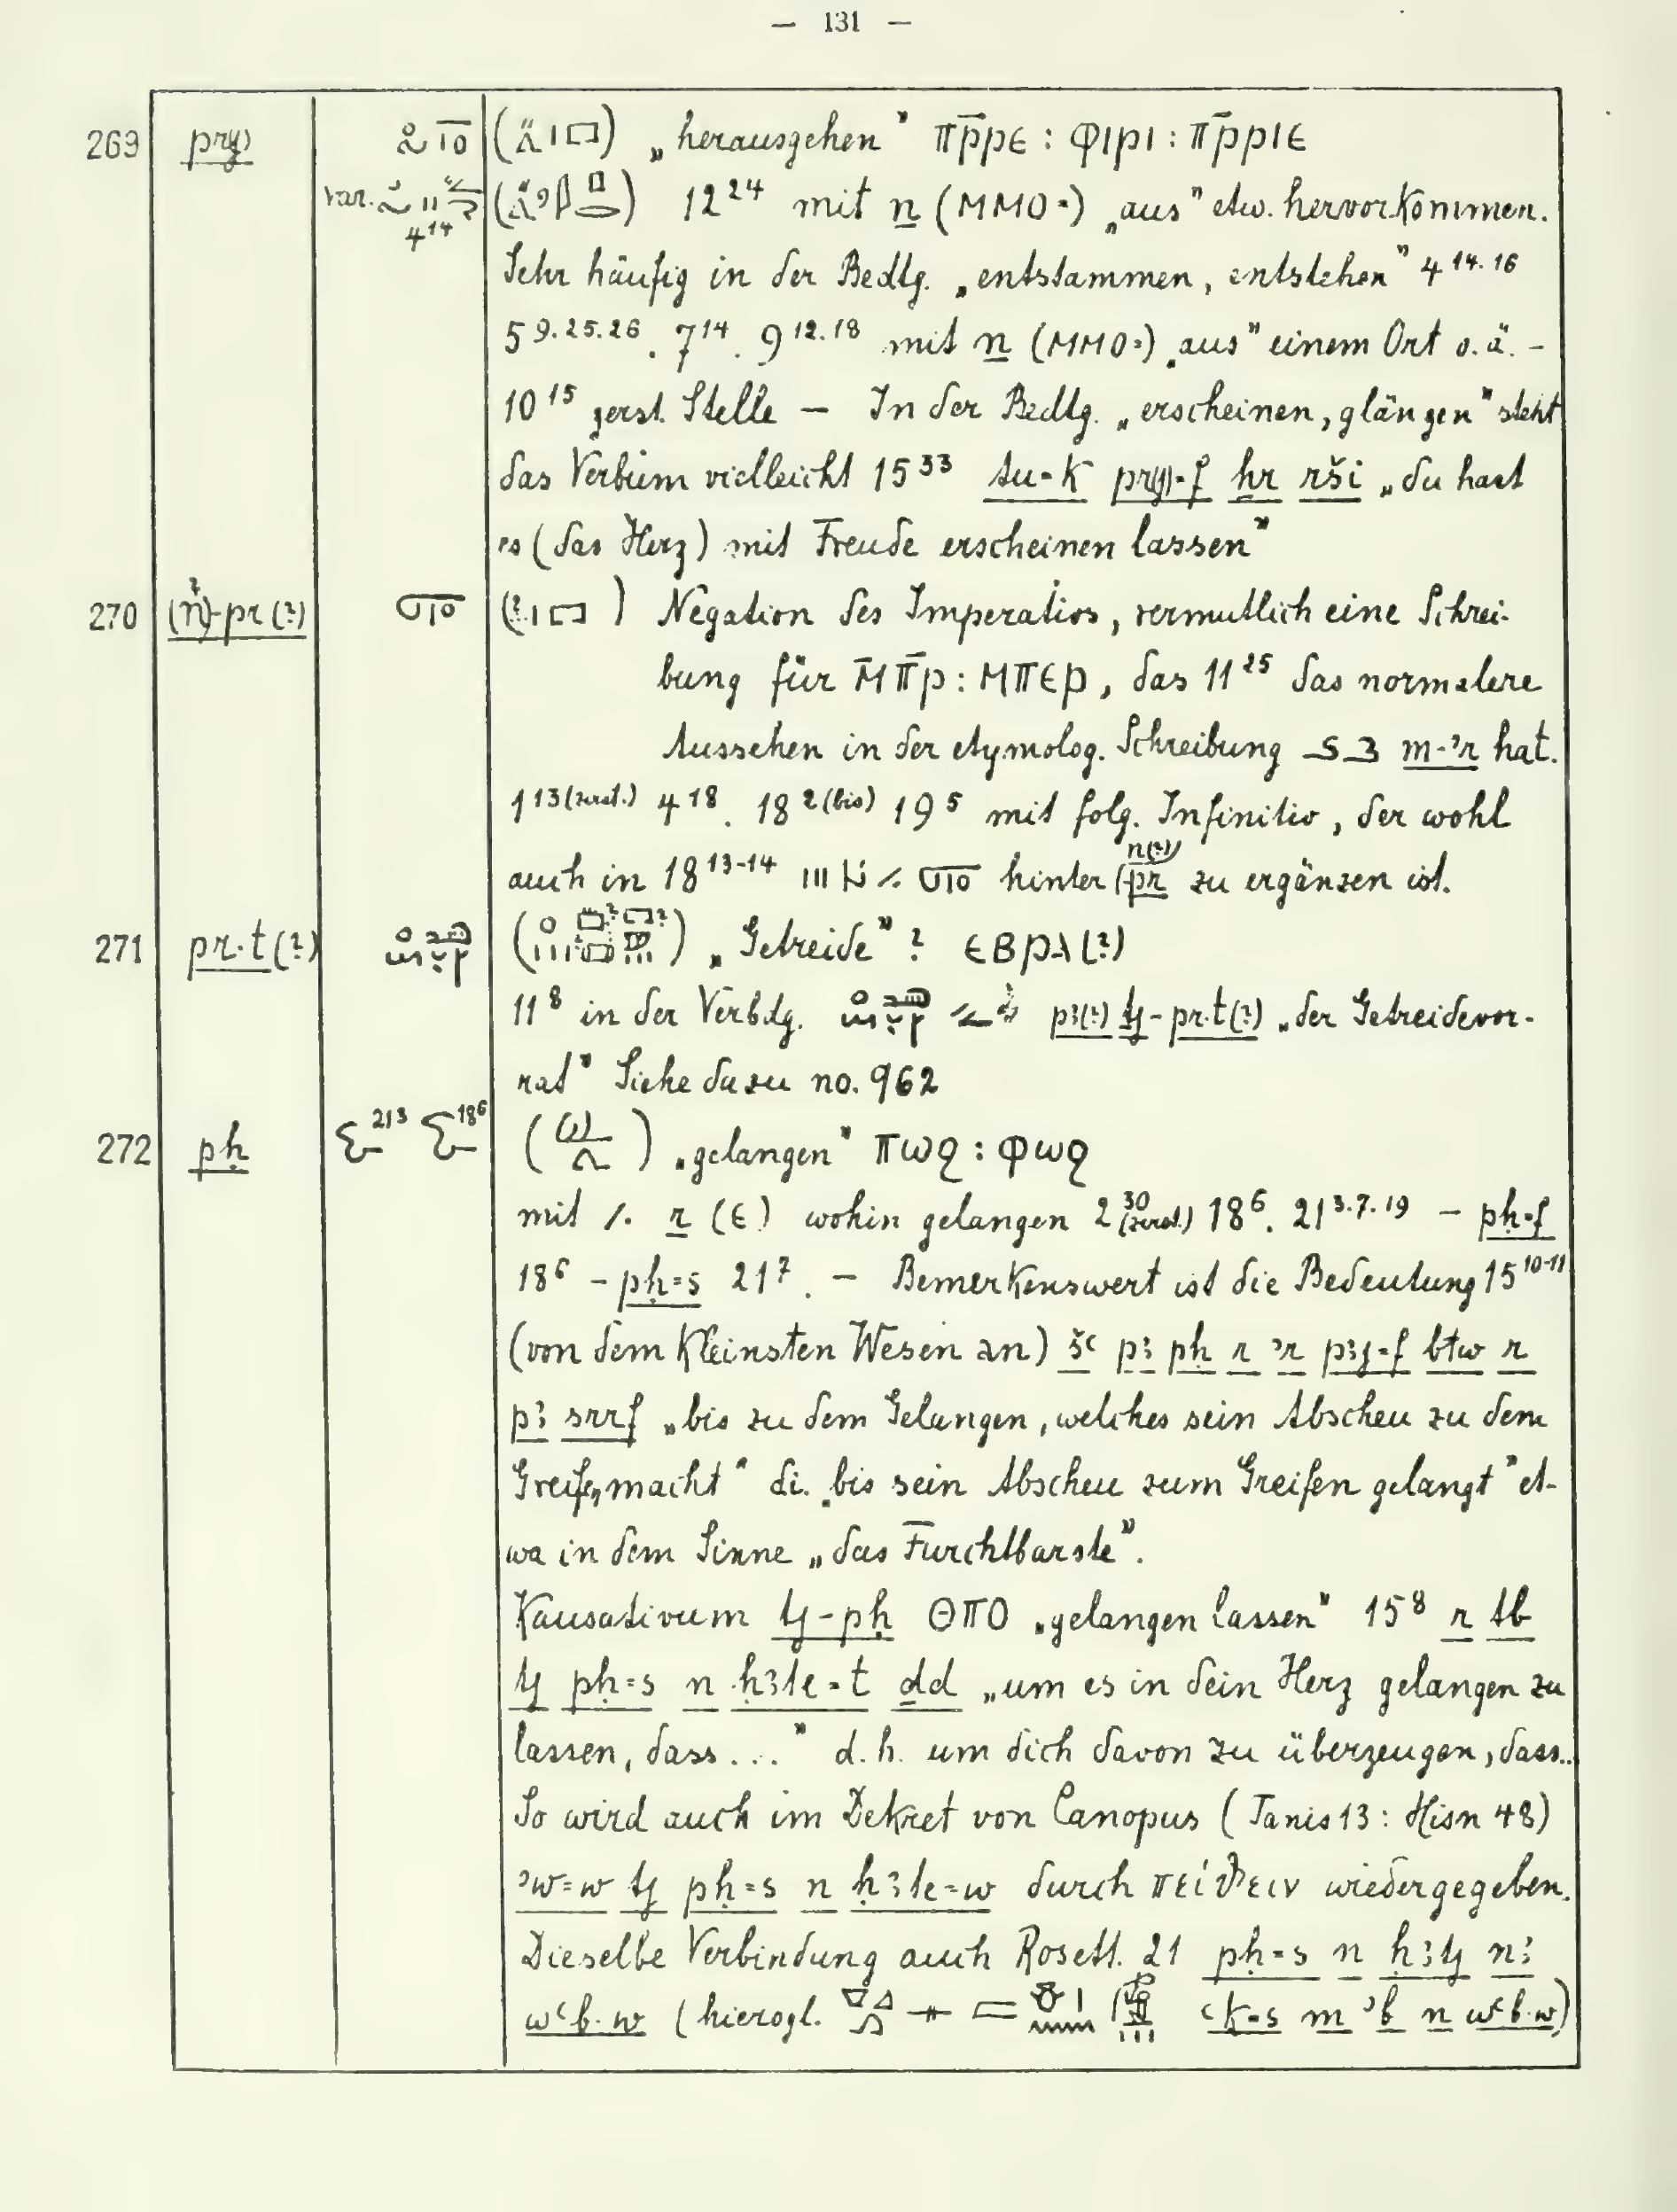 — 131 —
269 pr(y) („herausgehen" ⲡⲣ̄ⲣⲉ : ⲫⲓⲣⲓ : ⲡⲣ̄ⲣⲓⲉ
var. 4¹⁴ 12²⁴ mit n (ⲙⲙⲟ⸗) „aus" etw. hervorkommen.
Sehr häufig in der Bedtg. „entstammen, entstehen" 4¹⁴·¹⁶
5⁹·²⁵·²⁶. 7¹⁴. 9¹²·¹⁸ mit n (ⲙⲙⲟ⸗) „aus" einem Ort o. ä. –
10¹⁵ zerst. Stelle — In der Bedtg. „erscheinen, glänzen" steht
das Verbum vielleicht 15³³ tu=k pr(y)=f ḥr rši „du hast
es (das Herz) mit Freude erscheinen lassen"
270 (n)-pr (?) Negation des Imperativs, vermutlich eine Schrei-
bung für ⲙ̄ⲡ̄ⲣ : ⲙⲡⲉⲣ, das 11²⁵ das normalere
Aussehen in der etymolog. Schreibung m-ꜥr hat.
1¹³⁽ᶻᵉʳˢᵗ·⁾ 4¹⁸. 18²⁽ᵇⁱˢ⁾ 19⁵ mit folg. Infinitiv, der wohl
auch in 18¹³⁻¹⁴ hinter n(?)-pr zu ergänzen ist.
271 pr.t (?) „Getreide"? ⲉⲃⲣⲁ (?)
11⁸ in der Verbdg. pꜣ(?) ty-pr.t(?) „der Getreidevor-
rat" Siehe dazu no. 962
272 pḥ 21³ 18⁶ „gelangen" ⲡⲱϩ : ⲫⲱϩ
mit r (ⲉ) wohin gelangen 2³⁰ (zerst.) 18⁶. 21³·⁷·¹⁹ – pḥ=f
18⁶ – pḥ=s 21⁷. — Bemerkenswert ist die Bedeutung 15¹⁰⁻¹¹
(von dem kleinsten Wesen an) šꜥ pꜣ pḥ r ꜥr pꜣy=f btw r
pꜣ srrf „bis zu dem Gelangen, welches sein Abscheu zu dem
Greifen macht" di. „bis sein Abscheu zum Greifen gelangt" et-
wa in dem Sinne „das Furchtbarste".
Kausativum ty-pḥ ⲑⲡⲟ „gelangen lassen" 15⁸ r tb
ty pḥ=s n ḥꜣte=t dd „um es in dein Herz gelangen zu
lassen, dass ..." d. h. um dich davon zu überzeugen, dass..
So wird auch im Dekret von Canopus (Tanis 13 : Hisn 48)
ꜣw=w ty pḥ=s n ḥꜣte=w durch πείθειν wiedergegeben.
Dieselbe Verbindung auch Rosett. 21 pḥ=s n ḥꜣty nꜣ
wꜥb.w (hierogl. ꜥk=s m ꜣb n wꜥb.w)